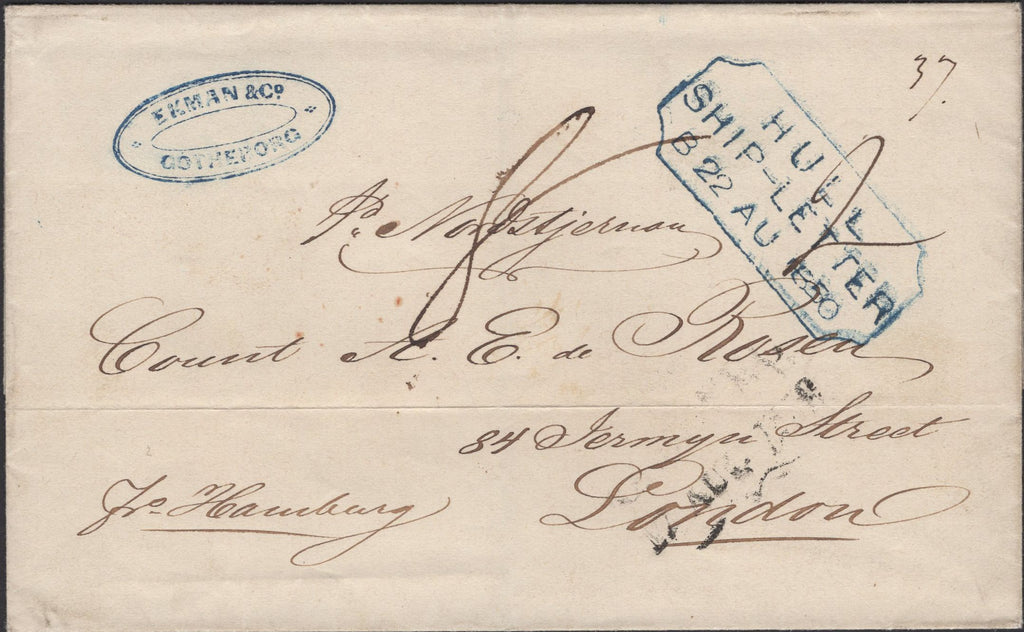 EKMAN & Co
GOTHEBORG
HULL
SHIP-LETTER
B 22 AU 1850
37.
8
pr. Nordstjernan
Count A. E. de Rosen
84 Jermyn Street
London
fro Hamburg